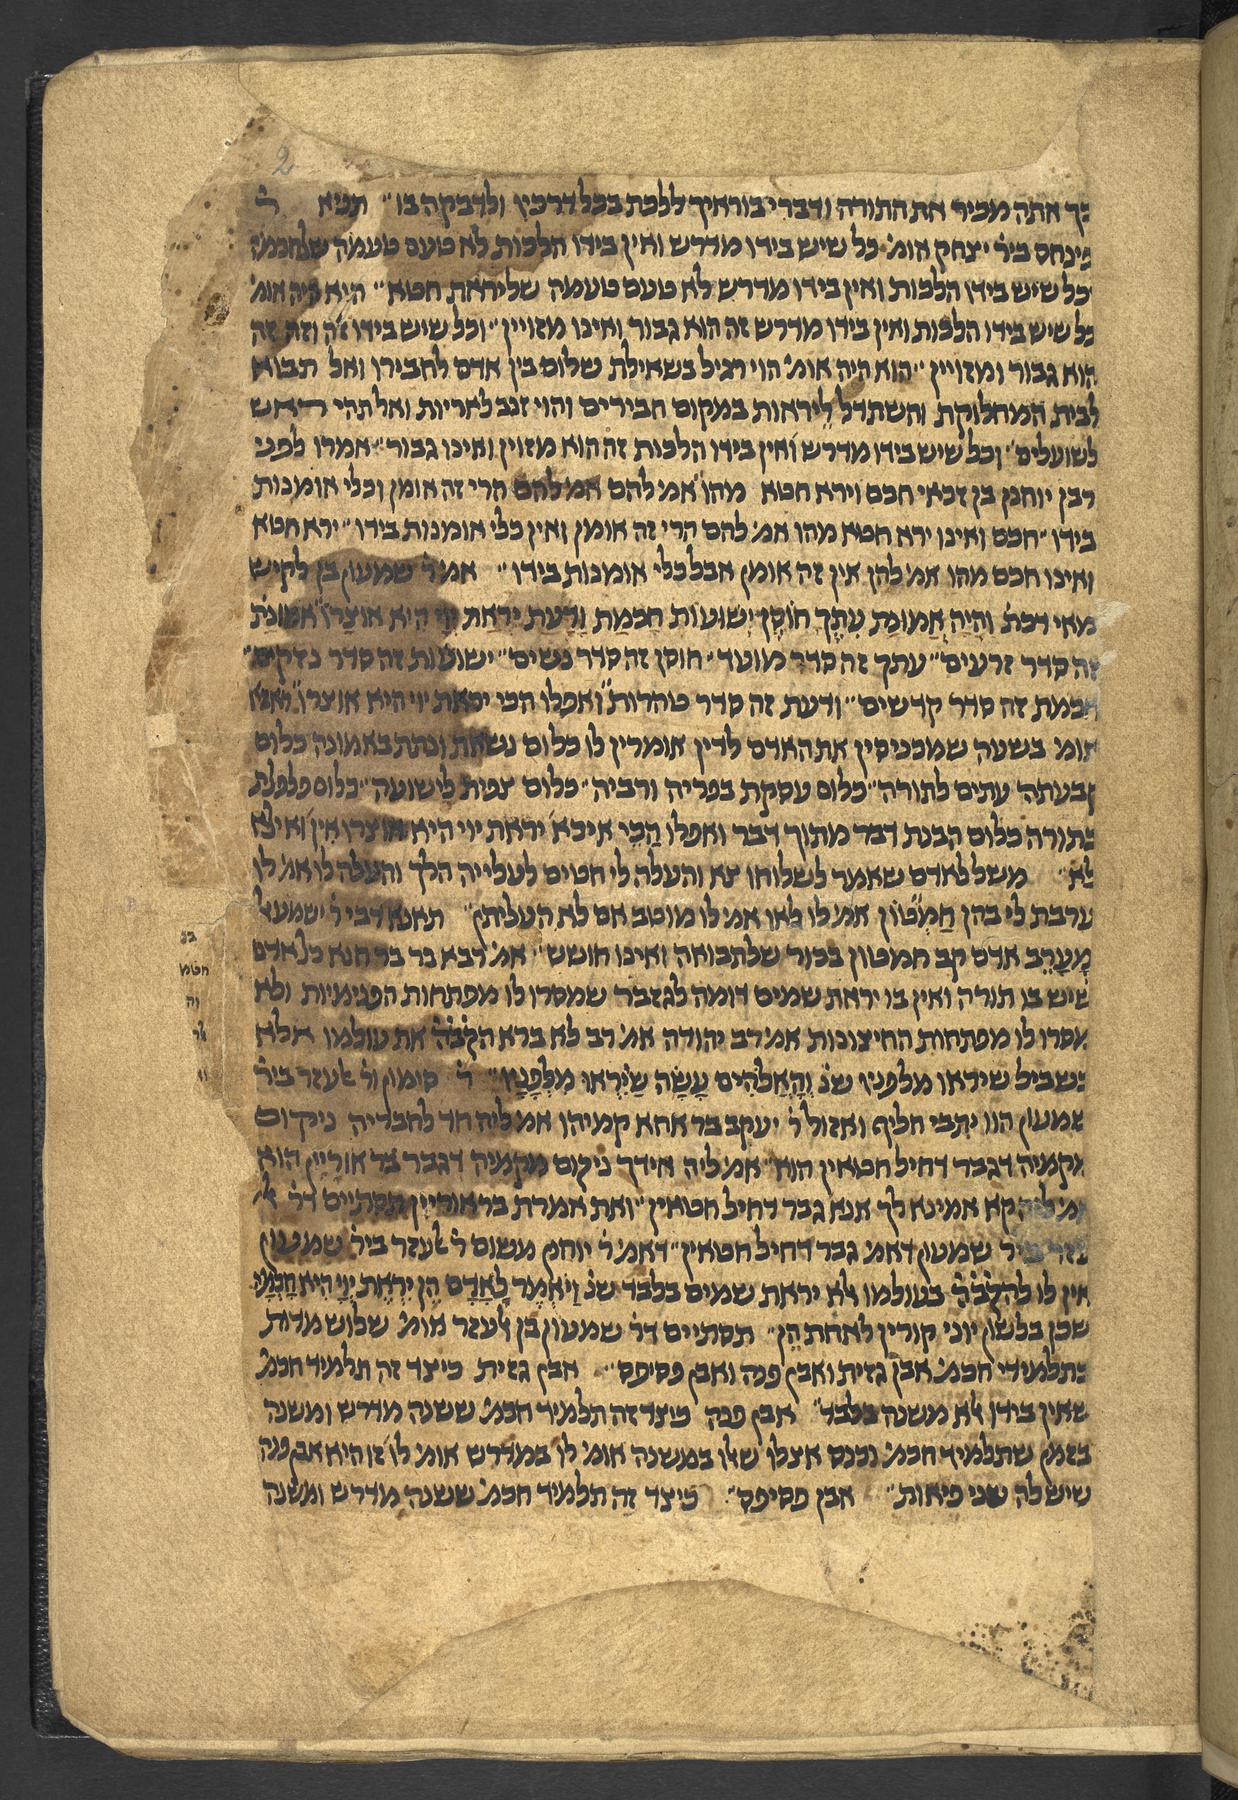 2
כך אתה מכיר את התורה ודברי בוראיך ללכת בכל דרכיו ולדבקה בו״ תניא ר׳
פינחס ביר׳ יצחק אומ׳ כל שיש בידו מדרש ואין בידו הלכות לא טעם טעמה שלחכמה
וכל שיש בידו הלכות ואין בידו מדרש לא טעם טעמה שליראת חטא״ הוא היה אומ׳
כל שיש בידו הלכות ואין בידו מדרש זה הוא גבור ואינו מזויין״ וכל שיש בידו זה וזה זה
הוא גבור ומזויין״ הוא היה אומ׳ הוי רגיל בשאילת שלום בין אדם לחבירו ואל תבוא
לבית המחלוקת והשתדל ליראות במקום חבירים והוי זנב לאריות ואל תהי ראש
לשועלים״ וכל שיש בידו מדרש ואין בידו הלכות זה הוא מזוין ואינו גבור״ אמרו לפני
רבן יוחנן בן זכאי חכם וירא חטא מהו אמ׳ להם אמ׳ להם הרי זה אומן וכלי אומנות
בידו״ חכם ואינו ירא חטא מהו אמ׳ להם הרי זה אומן ואין כלי אומנות בידו״ ירא חטא
ואינו חכם מהו אמ׳ להן אין זה אומן אבל כלי אומנות בידו״ אמ׳ ר׳ שמעון בן לקיש
מאי דכת׳ והיה אמונת עתך חוסן ישועות חכמת ודעת יראת יוי היא אוצרו אמונת
זה סדר זרעים״ עתך זה סדר מועד״ חוסן זה סדר נשים״ ישועות זה סדר נזקים״
חכמת זה סדר קדשים״ ודעת זה סדר טהרות״ ואפלו הכי יראת יוי היא אוצרו״
אומ׳ בשעה שמכניסין את האדם לדין אומרין לו כלום נשאת ונתת באמונה כלום
קבעתה עתים לתורה״ כלום עסקת בפריה ורביה״ כלום צפית לישועה״ כלום פלפלת
בתורה כלום הבנת דבר מתוך דבר ואפלו הכי איכא יראת יוי היא אוצרו אין ואי לא
לא״ משל לאדם שאמר לשלוחו צא והעלה לי חטים לעלייה הלך והעלה לו אמ׳ לו
ערבת לי בהן חמטון אמ׳ לו לאו אמ׳ לו מוטב אם לא העליתן״ תאנא דבי ר׳ ישמעאל
מערב אדם קב חמטון בכור שלתבואה ואינו חושש״ אמ׳ רבא בר בר חנא כל אדם
שיש בו תורה ואין בו יראת שמים דומה לגזבר שמסרו לו מפתחות הפנימיות ולא
מסרו לו מפתחות החיצונות אמ׳ רב יהודה אמ׳ רב לא ברא הקבה את עולמו אלא
בשביל שיראו מלפניו שנ׳ והאלהים עשה שיראו מלפניו״ ר׳ סימון ור׳ אלעזר ביר׳
שמעון הוו יתבי חליף ואזול ר׳ יעקב בר אחא קמיהן אמ׳ ליה חד לחבריה ניקום
מקמיה דגבר דחיל חטאין הוא״ אמ׳ ליה אידך ניקום מקמיה דגבר בר אוריין הוא
אמ׳ ליה קא אמינא לך אנא גבר דחיל חטאין״ ואת אמרת בר אוריין תסתיים דר׳ אל
עזר ביר׳ שמעון דאמ׳ גבר דחיל חטאין״ דאמ׳ ר׳ יוחנן משום ר׳ אלעזר ביר׳ שמעון
אין לו להקבה בעולמו אלא יראת שמים בלבד שנ׳ ויאמר לאדם הן יראת יוי היא חכמה
שכן בלשון יוני קורין לאחת הן״ תסתיים דר׳ שמעון בן אלעזר אומ׳ שלוש מדות
בתלמידי חכמ׳ אבן גזית ואבן פנה ואבן פסיפס״ אבן גזית כיצד זה תלמיד חכמ׳
שאין בידו אלא משנה בלבד״ אבן פנה כיצד זה תלמיד חכמ׳ ששנה מדרש ומשנה
בזמן שתלמיד חכמ׳ נכנס אצלו שאלו במשנה אומ׳ לו במדרש אומ׳ לו זו היא אבן פנה
שיש לה שני פיאות״ אבן פסיפס״ כיצד זה תלמיד חכמ׳ ששנה מדרש ומשנה